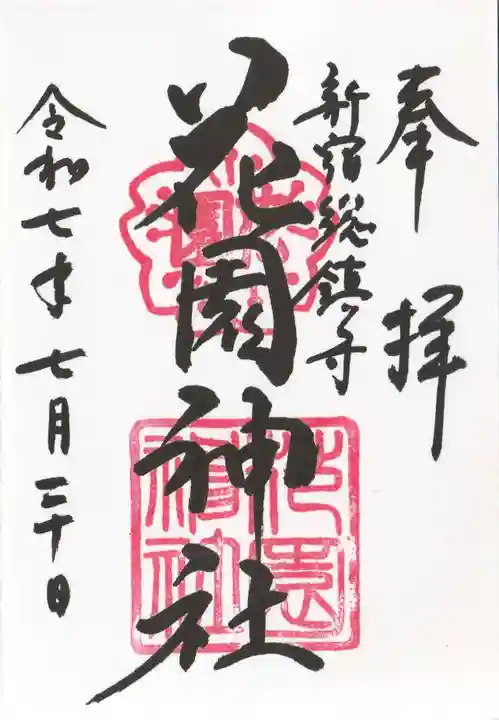 奉拝
新宿総鎮守
花園神社
花園神社
令和七年七月三十日